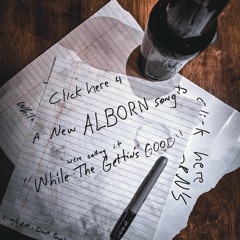 Click here 4
A New ALBORN song
were calling it
"While The Gettins GOOD"
click here